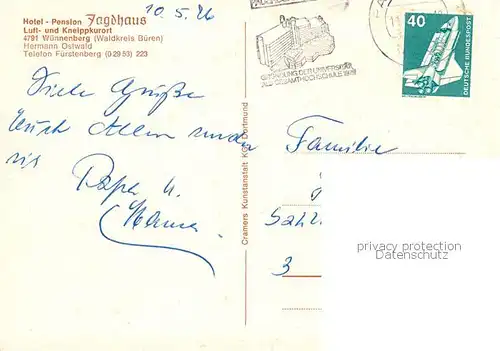 10.5.76
Hotel - Pension Jagdhaus
Luft- und Kneippkurort
4791 Wünnenberg (Waldkreis Büren)
Hermann Ostwald
Telefon Fürstenberg (0 29 53) 223
Viele Grüße
Euch Allen
Papa u.
Mama
Cramers Kunstanstalt KG, Dortmund
GRÜNDUNG DER UNIVERSITÄT
ALS GESAMTHOCHSCHULE
40
DEUTSCHE BUNDESPOST
Familie
3
privacy protection
Datenschutz